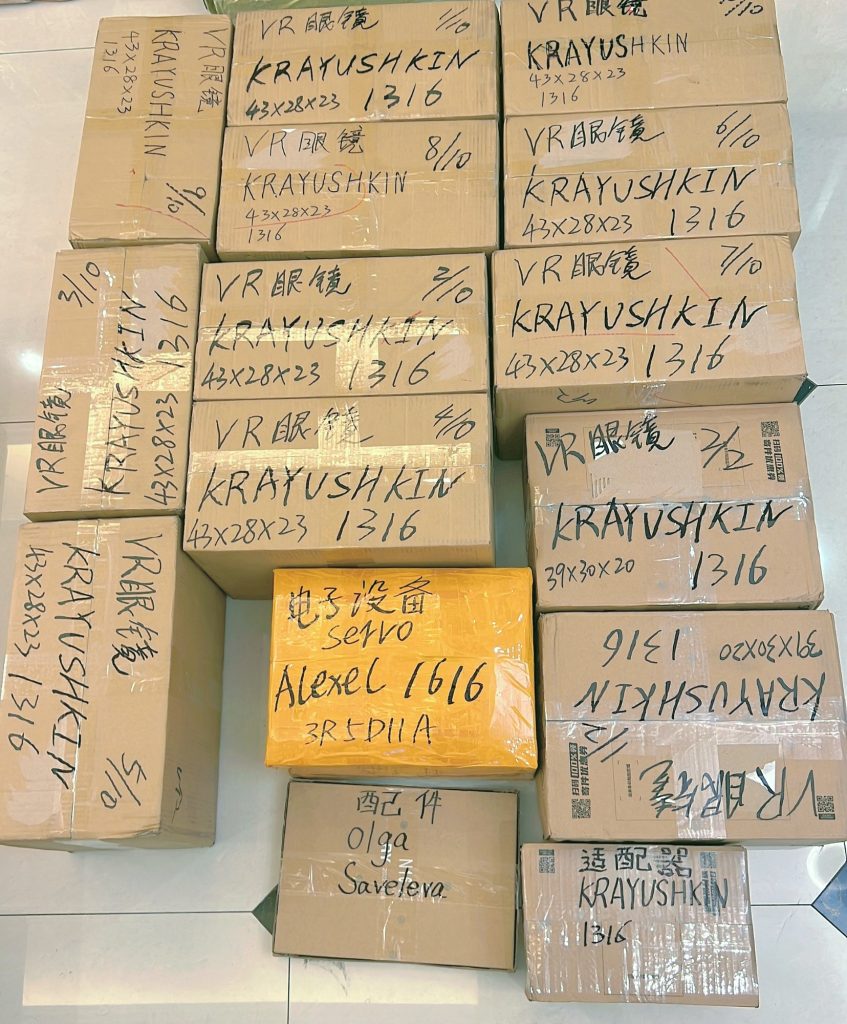 VR眼镜
KRAYUSHKIN
43×28×23
1316
9/10
VR眼镜 1/10
KRAYUSHKIN
43×28×23 1316
VR眼镜
KRAYUSHKIN
43×28×23
1316
VR眼镜 8/10
KRAYUSHKIN
43×28×23
1316
VR眼镜 6/10
KRAYUSHKIN
43×28×23 1316
3/10
VR眼镜
KRAYUSHKIN
43×28×23 1316
VR眼镜 2/10
KRAYUSHKIN
43×28×23 1316
VR眼镜 7/10
KRAYUSHKIN
43×28×23 1316
VR眼镜 4/10
KRAYUSHKIN
43×28×23 1316
VR眼镜 2/2
KRAYUSHKIN
39×30×20 1316
VR眼镜 5/10
KRAYUSHKIN
43×28×23 1316
电子设备
servo
Alexel 1616
3R5D11A
VR眼镜 1/2
KRAYUSHKIN
39×30×20 1316
配件
Olga
Saveleva
适配器
KRAYUSHKIN
1316